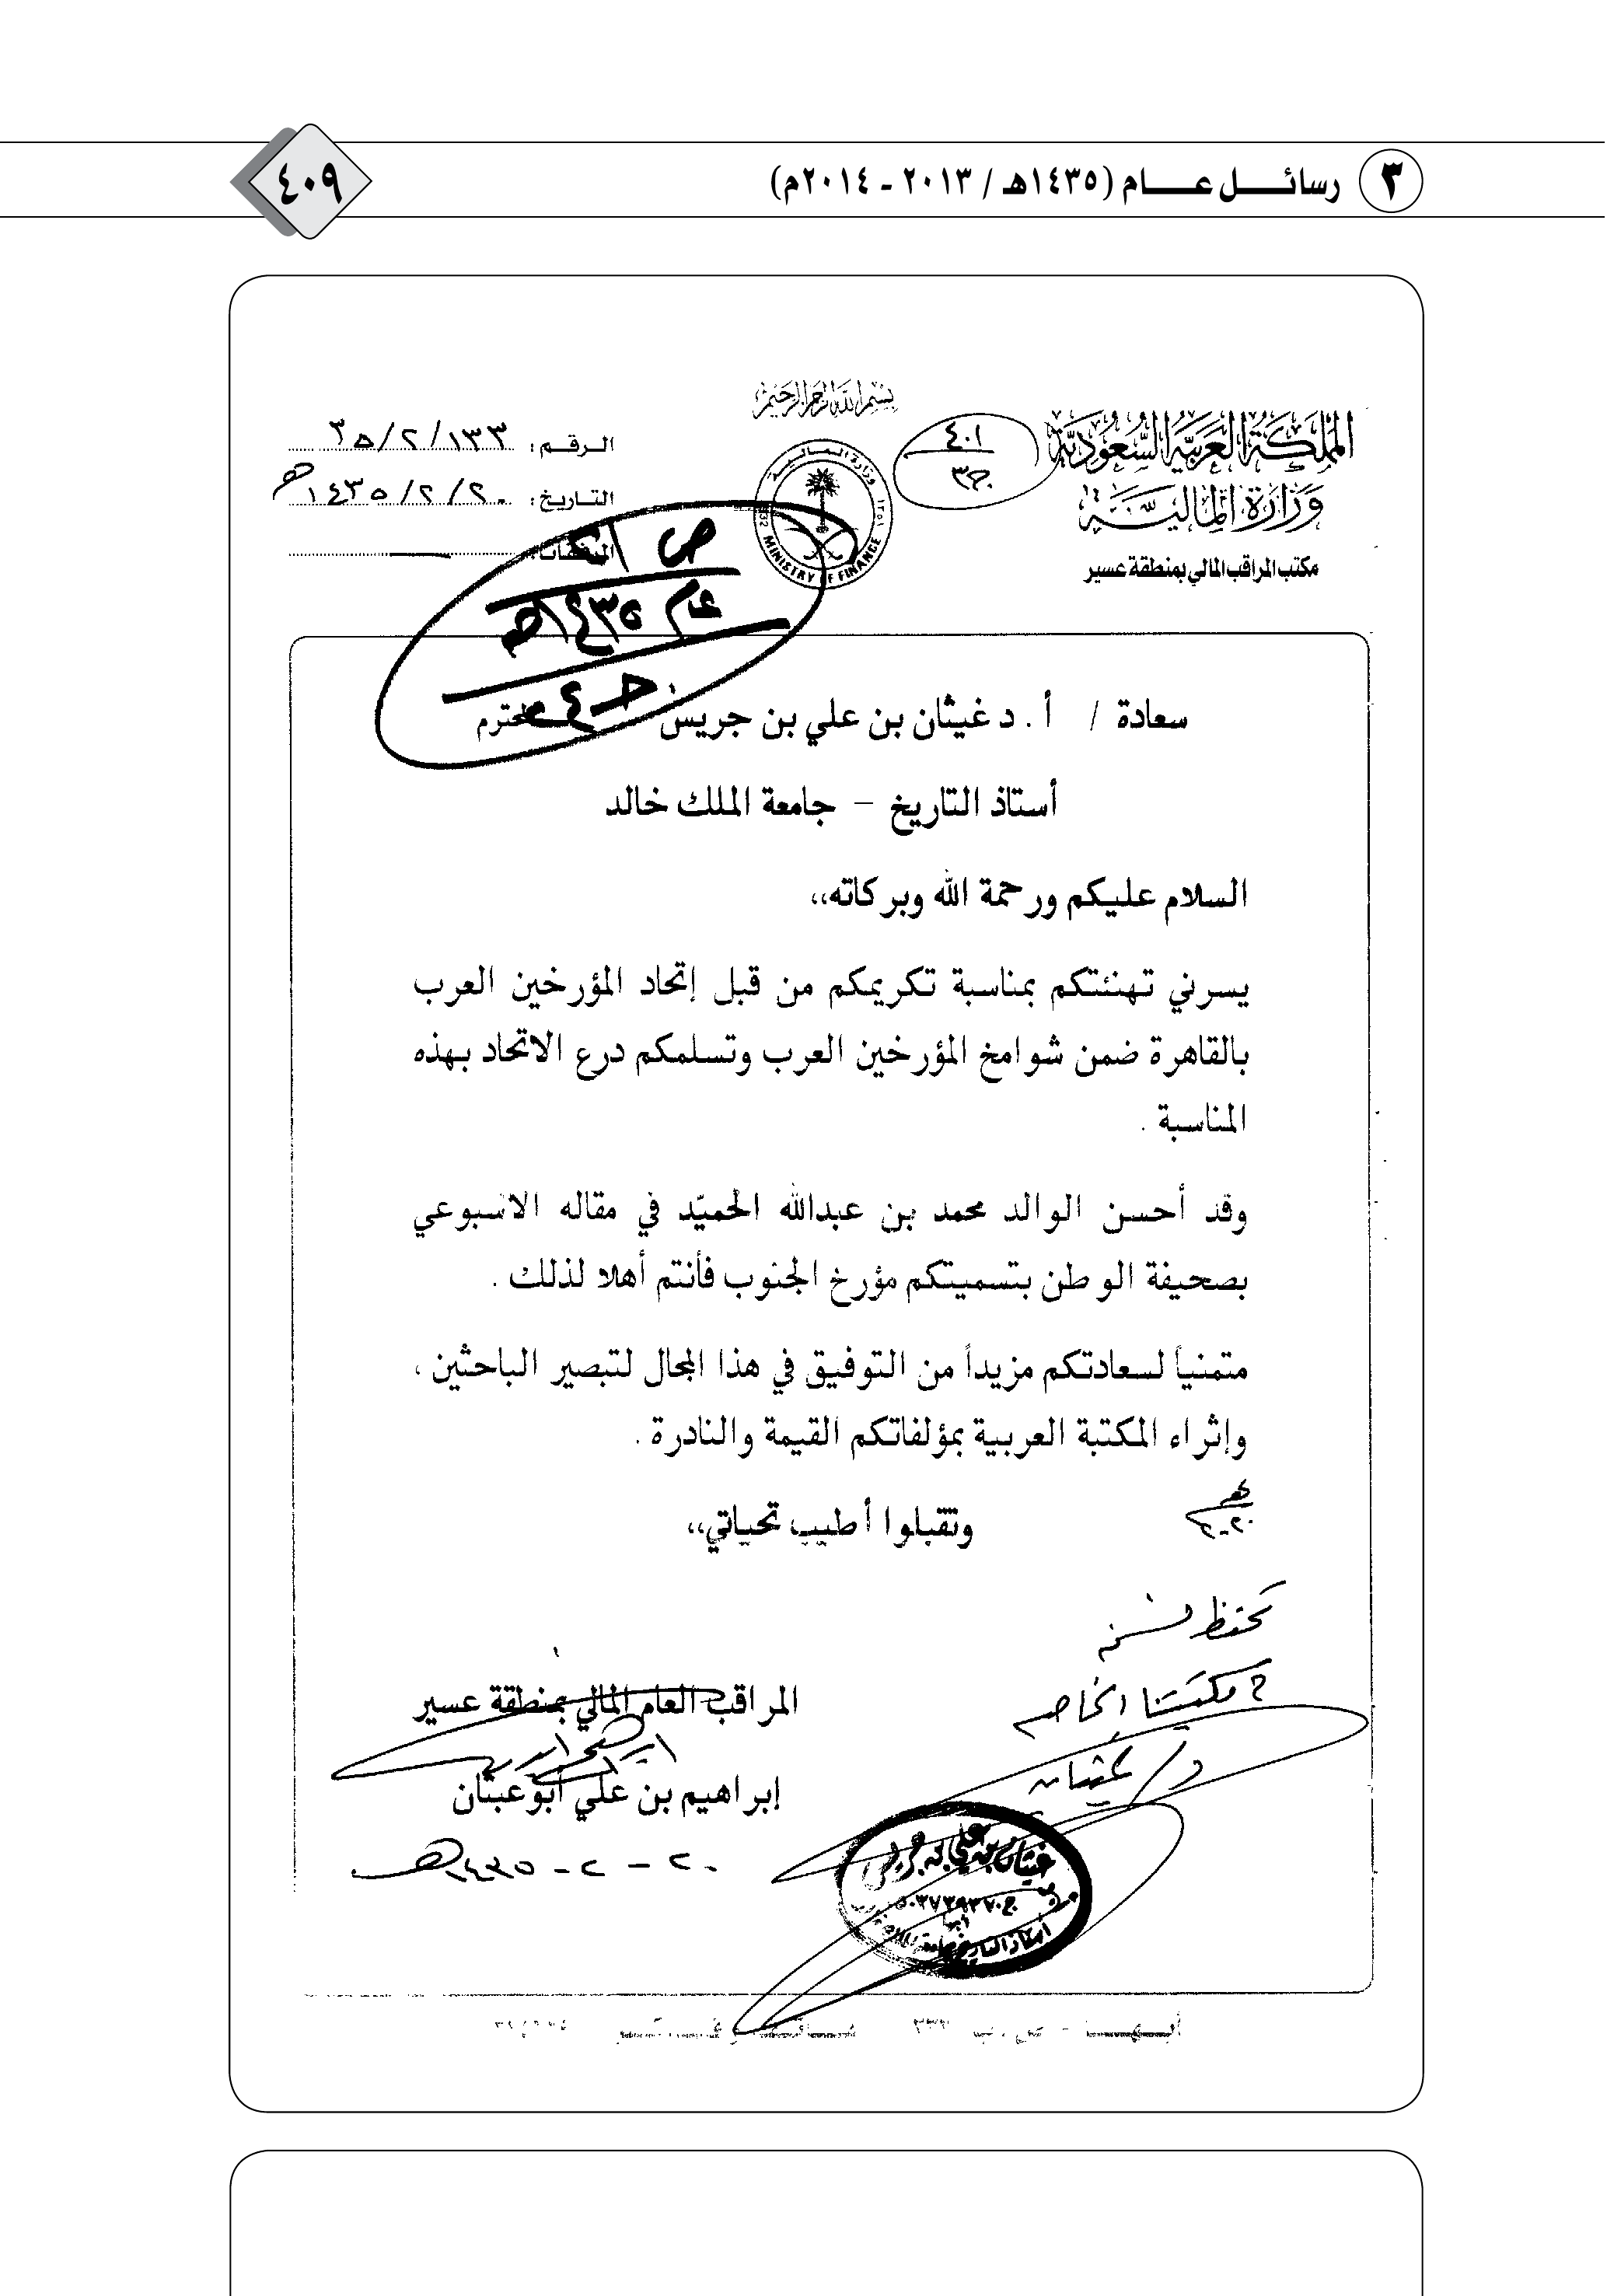 ٣ رسائل عام (١٤٣٥هـ / ٢٠١٣ - ٢٠١٤م)
٤٠٩
بسم الله الرحمن الرحيم
المملكة العربية السعودية
وزارة المالية
مكتب المراقب المالي بمنطقة عسير
٤٠١
ج٣
وزارة المالية
MINISTRY OF FINANCE
الرقم: ٣٥/٢/١٣٣
التاريخ: ١٤٣٥/٢/٢٠هـ
ص
عام ١٤٣٥هـ
سعادة / أ . د غيثان بن علي بن جريس المحترم
أستاذ التاريخ – جامعة الملك خالد
السلام عليكم ورحمة الله وبركاته،،
يسرني تهنئتكم بمناسبة تكريمكم من قبل إتحاد المؤرخين العرب
بالقاهرة ضمن شوامخ المؤرخين العرب وتسلمكم درع الاتحاد بهذه
المناسبة .
وقد أحسن الوالد محمد بن عبدالله الحميّد في مقاله الاسبوعي
بصحيفة الوطن بتسميتكم مؤرخ الجنوب فأنتم أهلا لذلك .
متمنياً لسعادتكم مزيداً من التوفيق في هذا المجال لتبصير الباحثين ،
وإثراء المكتبة العربية بمؤلفاتكم القيمة والنادرة .
وتقبلوا أطيب تحياتي،،
٢٠-٢
تحفظ
مكتبتنا الخاصة
د/ غيثان
المراقب العام المالي بمنطقة عسير
إبراهيم بن علي أبوعبثان
٢٠ - ٢ - ١٤٣٥هـ
غيثان بن علي بن جريس
أبها
أستاذ التاريخ بجامعة
أبها - ص.ب